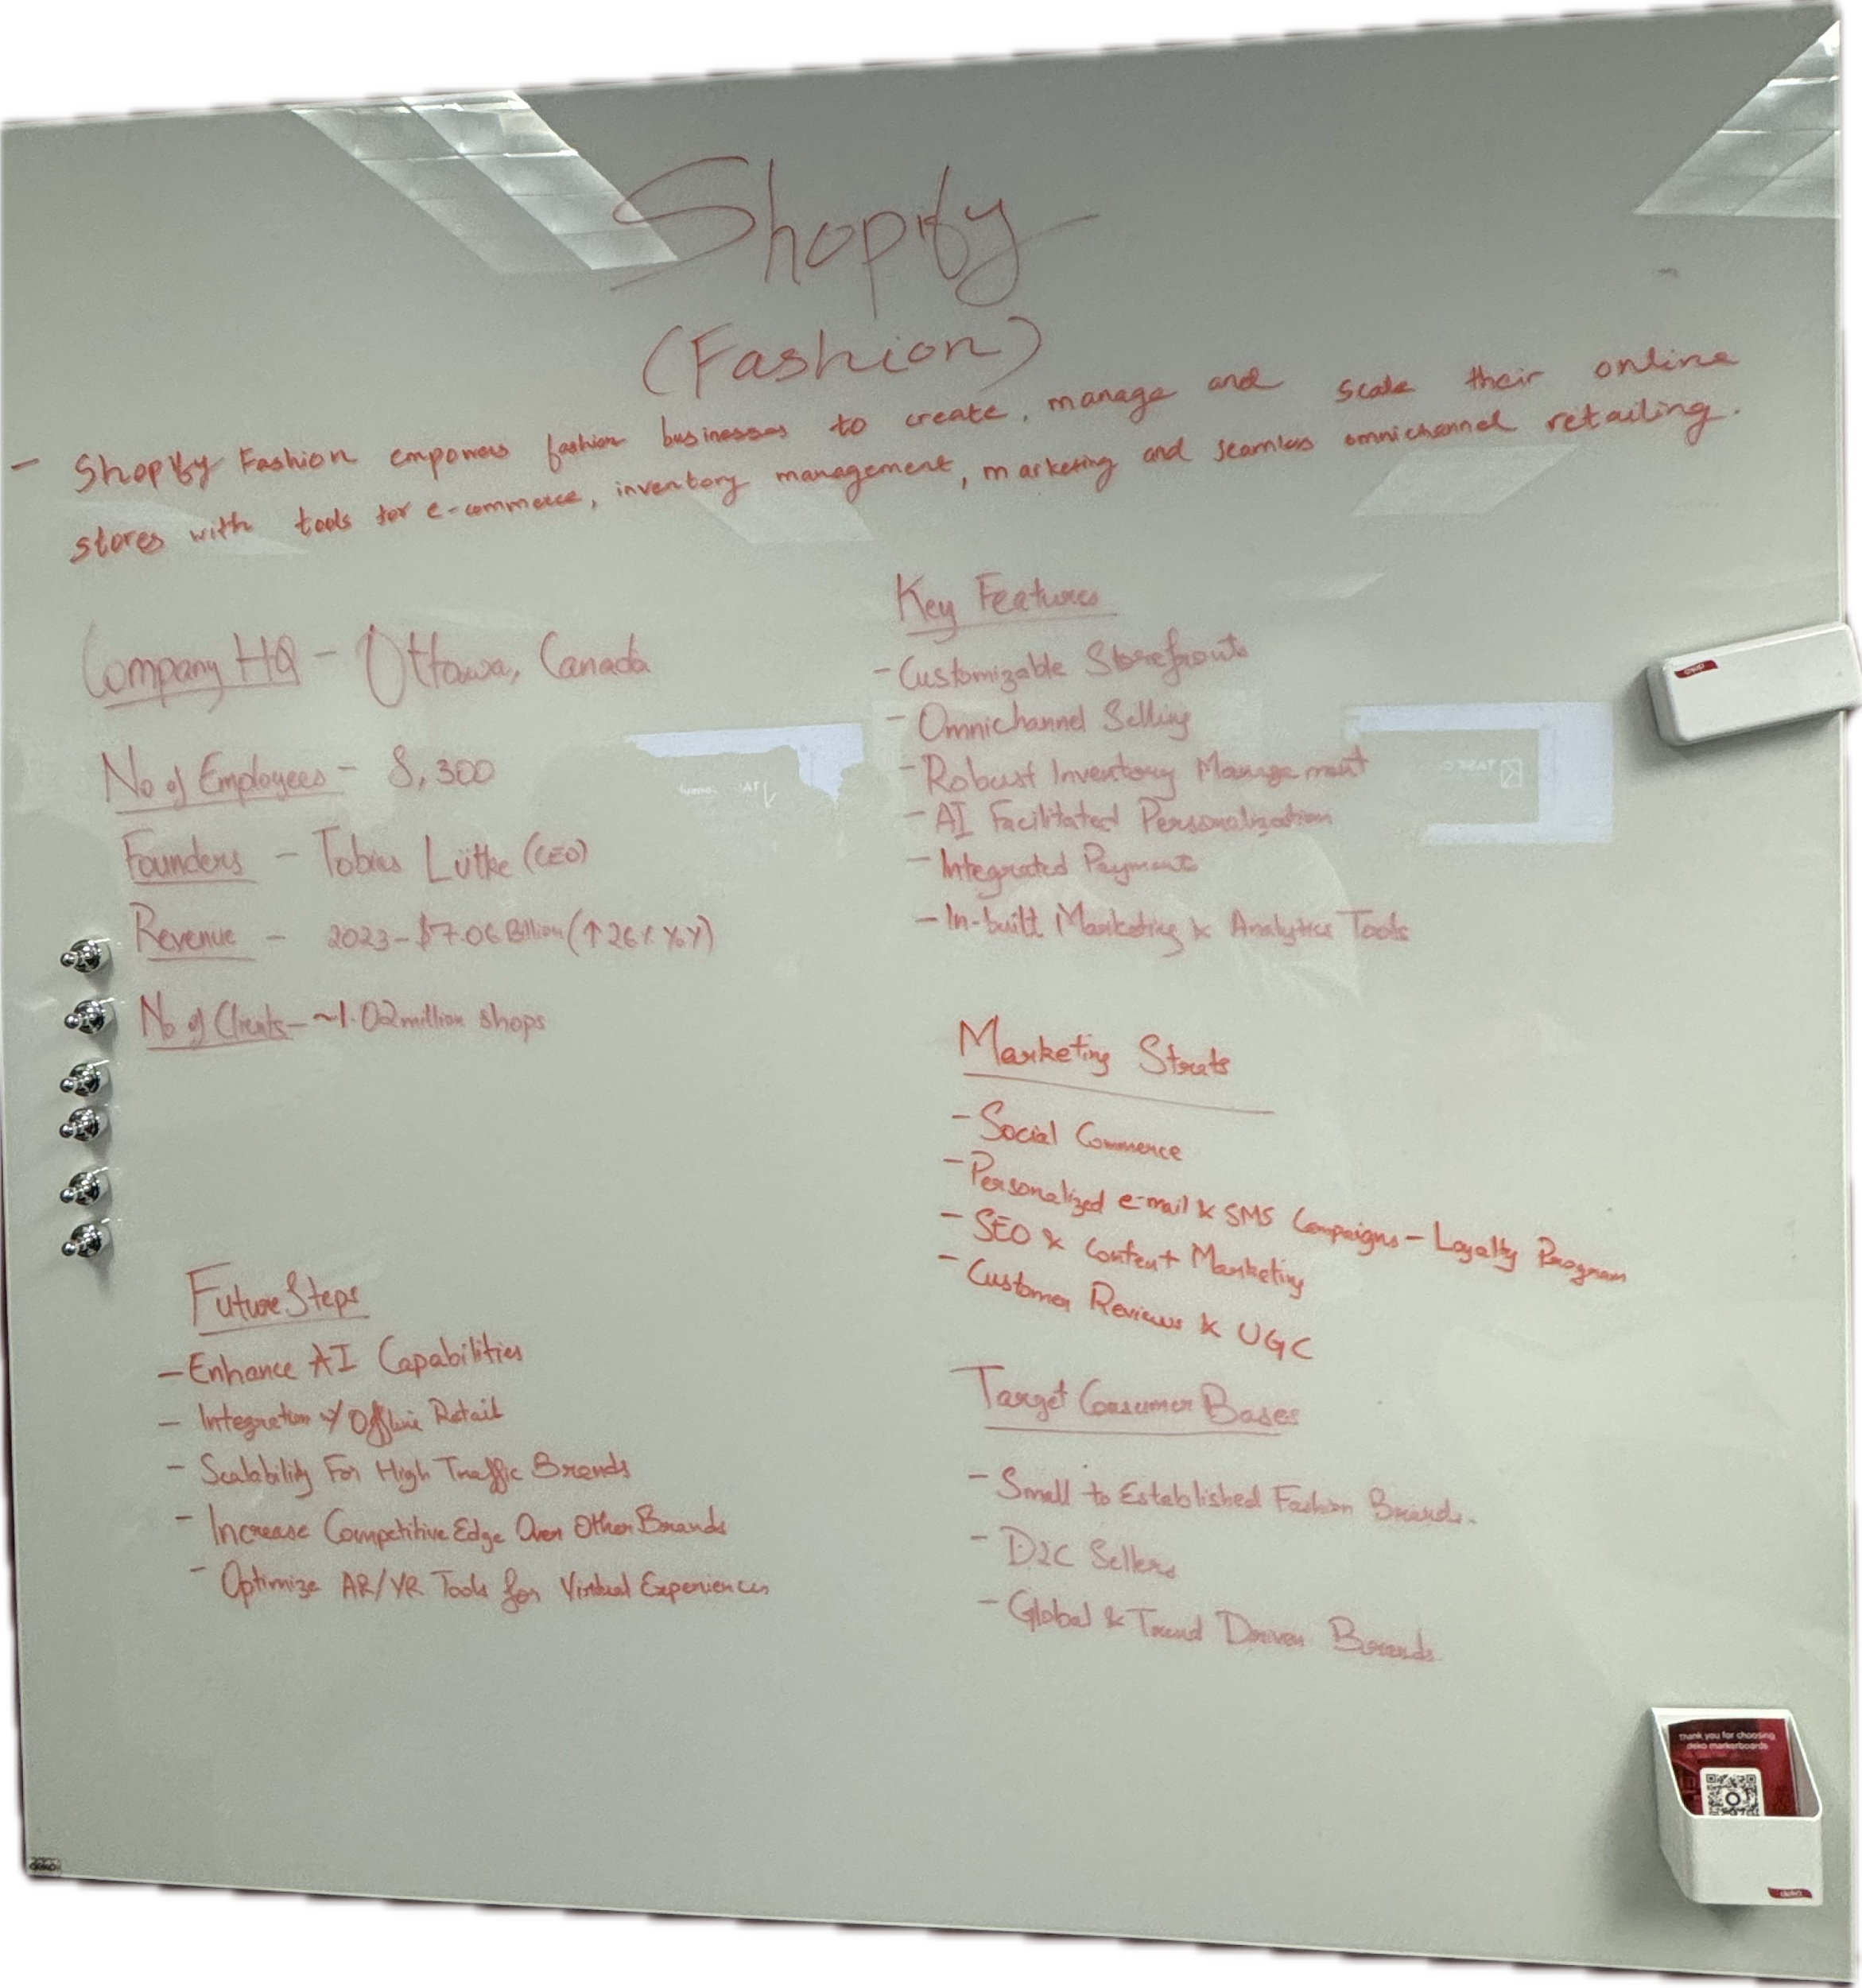 Shopify
(Fashion)
- Shopify Fashion empowers fashion businesses to create, manage and scale their online
stores with tools for e-commerce, inventory management, marketing and seamless omnichannel retailing.
Company HQ - Ottawa, Canada
No of Employees - 8,300
Founders - Tobias Lütke (CEO)
Revenue - 2023 - $7.06 Billion (↑26% YoY)
No of Clients - ~1.02 million shops
Key Features
- Customizable Storefronts
- Omnichannel Selling
- Robust Inventory Management
- AI Facilitated Personalization
- Integrated Payments
- In-built Marketing & Analytics Tools
Marketing Strats
- Social Commerce
- Personalized e-mail & SMS Campaigns - Loyalty Program
- SEO & Content Marketing
- Customer Reviews & UGC
Future Steps
- Enhance AI Capabilities
- Integration w/ Offline Retail
- Scalability For High Traffic Brands
- Increase Competitive Edge Over Other Brands
- Optimize AR/VR Tools for Virtual Experiences
Target Consumer Bases
- Small to Established Fashion Brands.
- D2C Sellers
- Global & Trend Driven Brands
Thank you for choosing
deko markerboards
deko